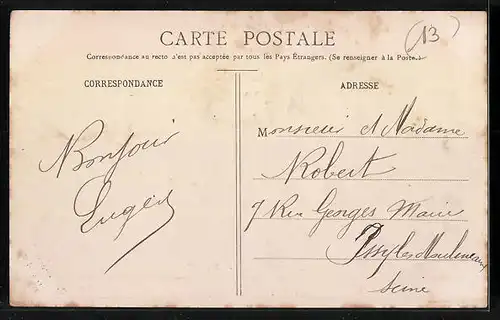 CARTE POSTALE
(13)
Correspondance au recto n'est pas acceptée par tous les Pays Étrangers. (Se renseigner à la Poste.)
CORRESPONDANCE
ADRESSE
Bonjour
Monsieur et Madame
Robert
7 Rue Georges
Issy les Moulineaux
Seine